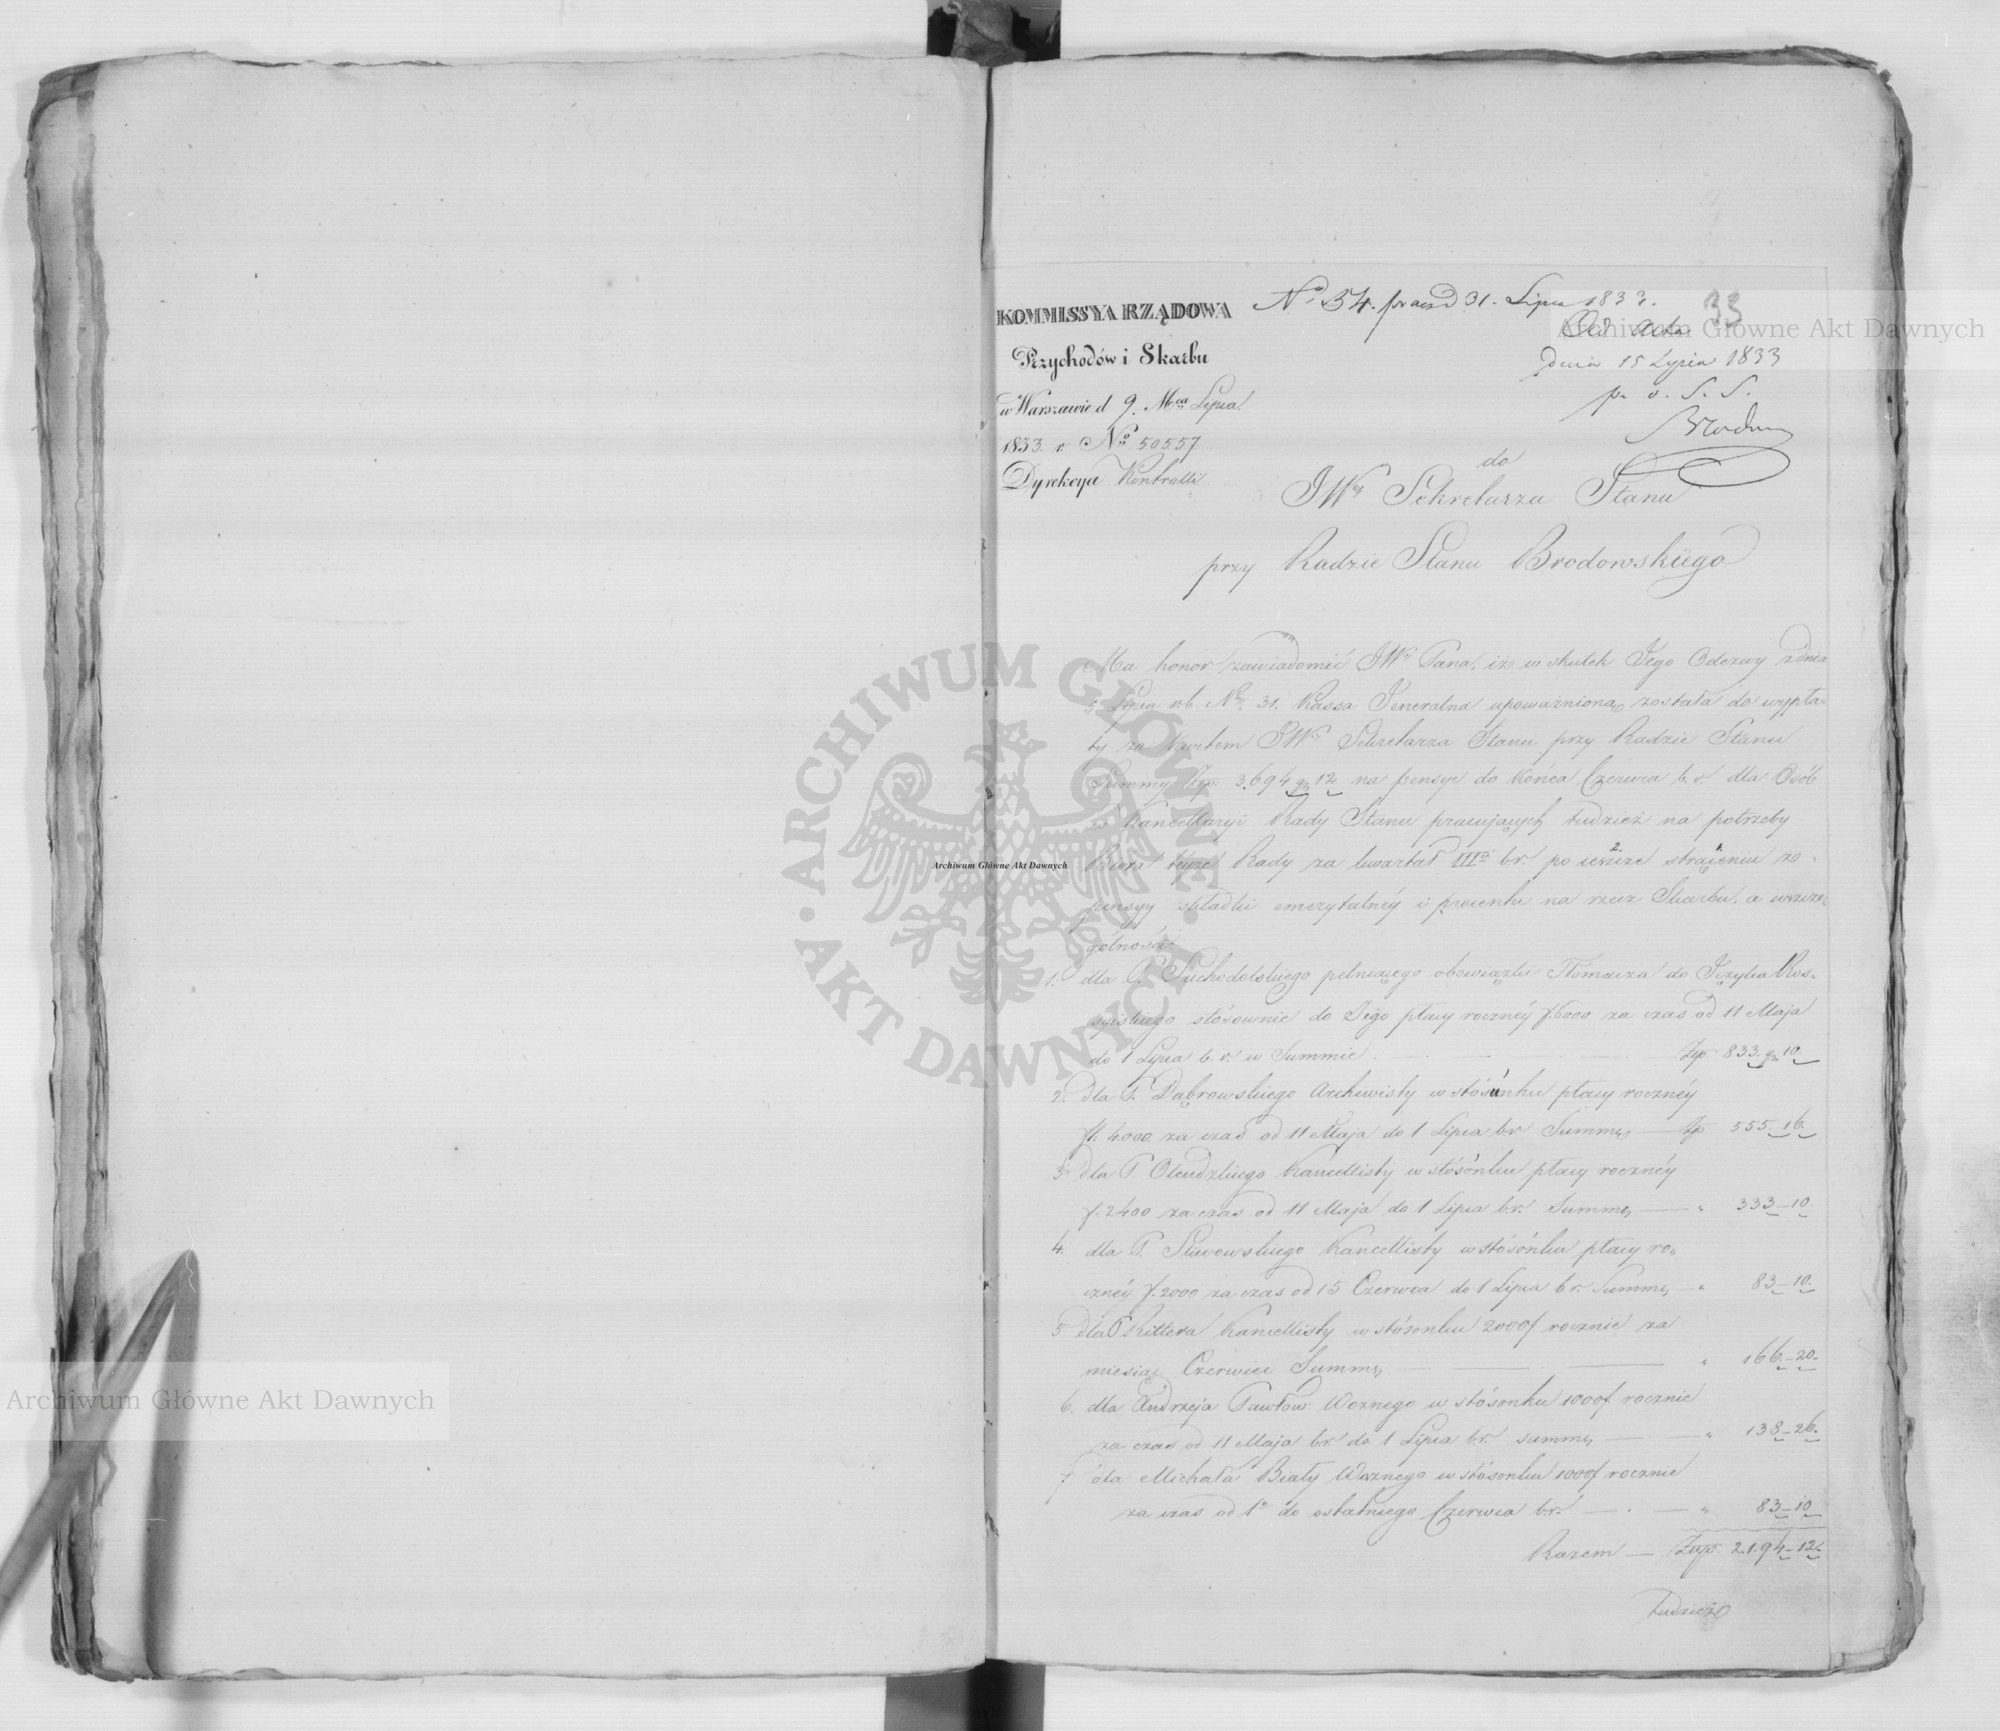 KOMMISSYA RZĄDOWA
Przychodów i Skarbu
w Warszawie d 9. Mca Lipca
1833 r. No 50557
Dyrekcya Kontrolli
No 54. praesd 31. Lipca 1833.
33
Ad Acta
Dnia 15 Lipca 1833
p. o. S. S.
do
JWo Sekretarza Stanu
przy Radzie Stanu Brodowskiego
Ma honor zawiadomić JWo Pana, iż w skutek Jego Odezwy z dnia
5 Lipca r.b. No 31. Kassa Jeneralna upoważnioną została do wypła-
ty za kwitem JWo Sekretarza Stanu przy Radzie Stanu
Summy Złp. 3,694 gr 12 na pensye do końca Czerwca b.r. dla Osób
w Kancellaryi Rady Stanu pracujących tudzież na potrzeby
Biura teyże Rady za kwartał III b.r. po strąceniu z
pensyy składki emerytalnéy i procentu na rzecz Skarbu, a wszcze-
gólności:
1. dla P. Suchodolskiego pełniącego obowiązki Tłomacza do Języka Ros-
syiskiego stósownie do Jego płacy rocznéy f. 6000 za czas od 11 Maja
do 1 Lipca b.r. w Summie Złp. 833. gr 10.
2. dla P. Dąbrowskiego Archiwisty w stósunku płacy rocznéy
f. 4000. za czas od 11 Maja do 1 Lipca b.r. Summę Złp 555.16.
3 dla P. Olendzkiego Kancellisty w stósónku płacy rocznéy
f. 2400 za czas od 11 Maja do 1 Lipca b.r. Summę — " 333–10.
4. dla P. Kancellisty w stósónku płacy ro-
cznéy f. 2000 za czas od 15 Czerwca do 1 Lipca b.r. Summę — " 83–10.
5 dla P Rittera Kancellisty w stósonku 2000f rocznie za
miesiąc Czerwiec Summę — " 166–20.
6. dla Andrzeja Pawłow Woznego w stósonku 1000f. rocznie
za czas od 11 Maja b.r. do 1 Lipca b.r. summę — " 138–26.
7 dla Michała Biały Woznego w stósonku 1000f rocznie
za czas od 1o do ostatniego Czerwca b.r. — " 83–10
Razem — Złp. 2.194–12.
Tudzież
Archiwum Główne Akt Dawnych
Archiwum Główne Akt Dawnych
Archiwum Główne Akt Dawnych
ARCHIWUM GŁÓWNE AKT DAWNYCH